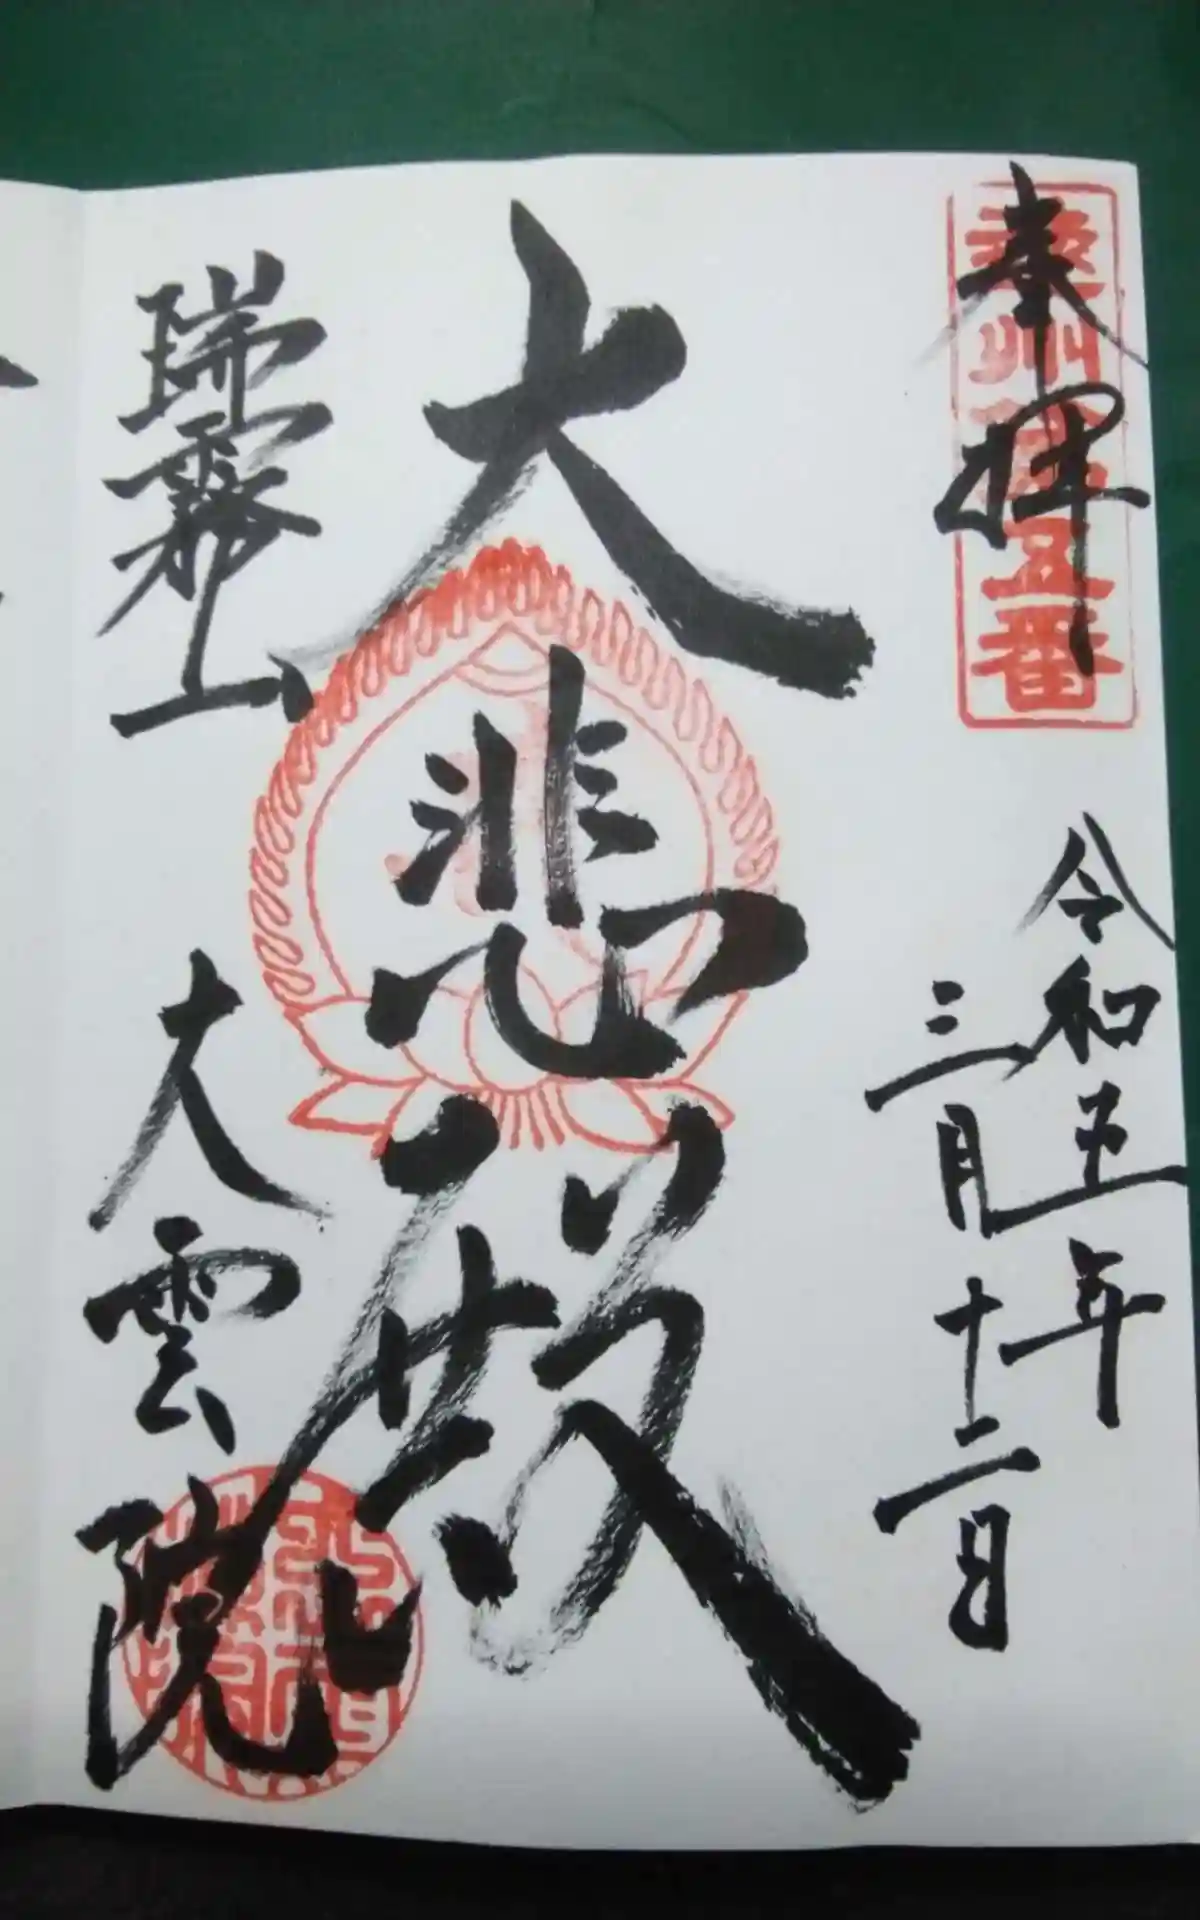 奉拝
州
五番
令和五年
三月十二日
大悲殿
瑞霧山
大雲院